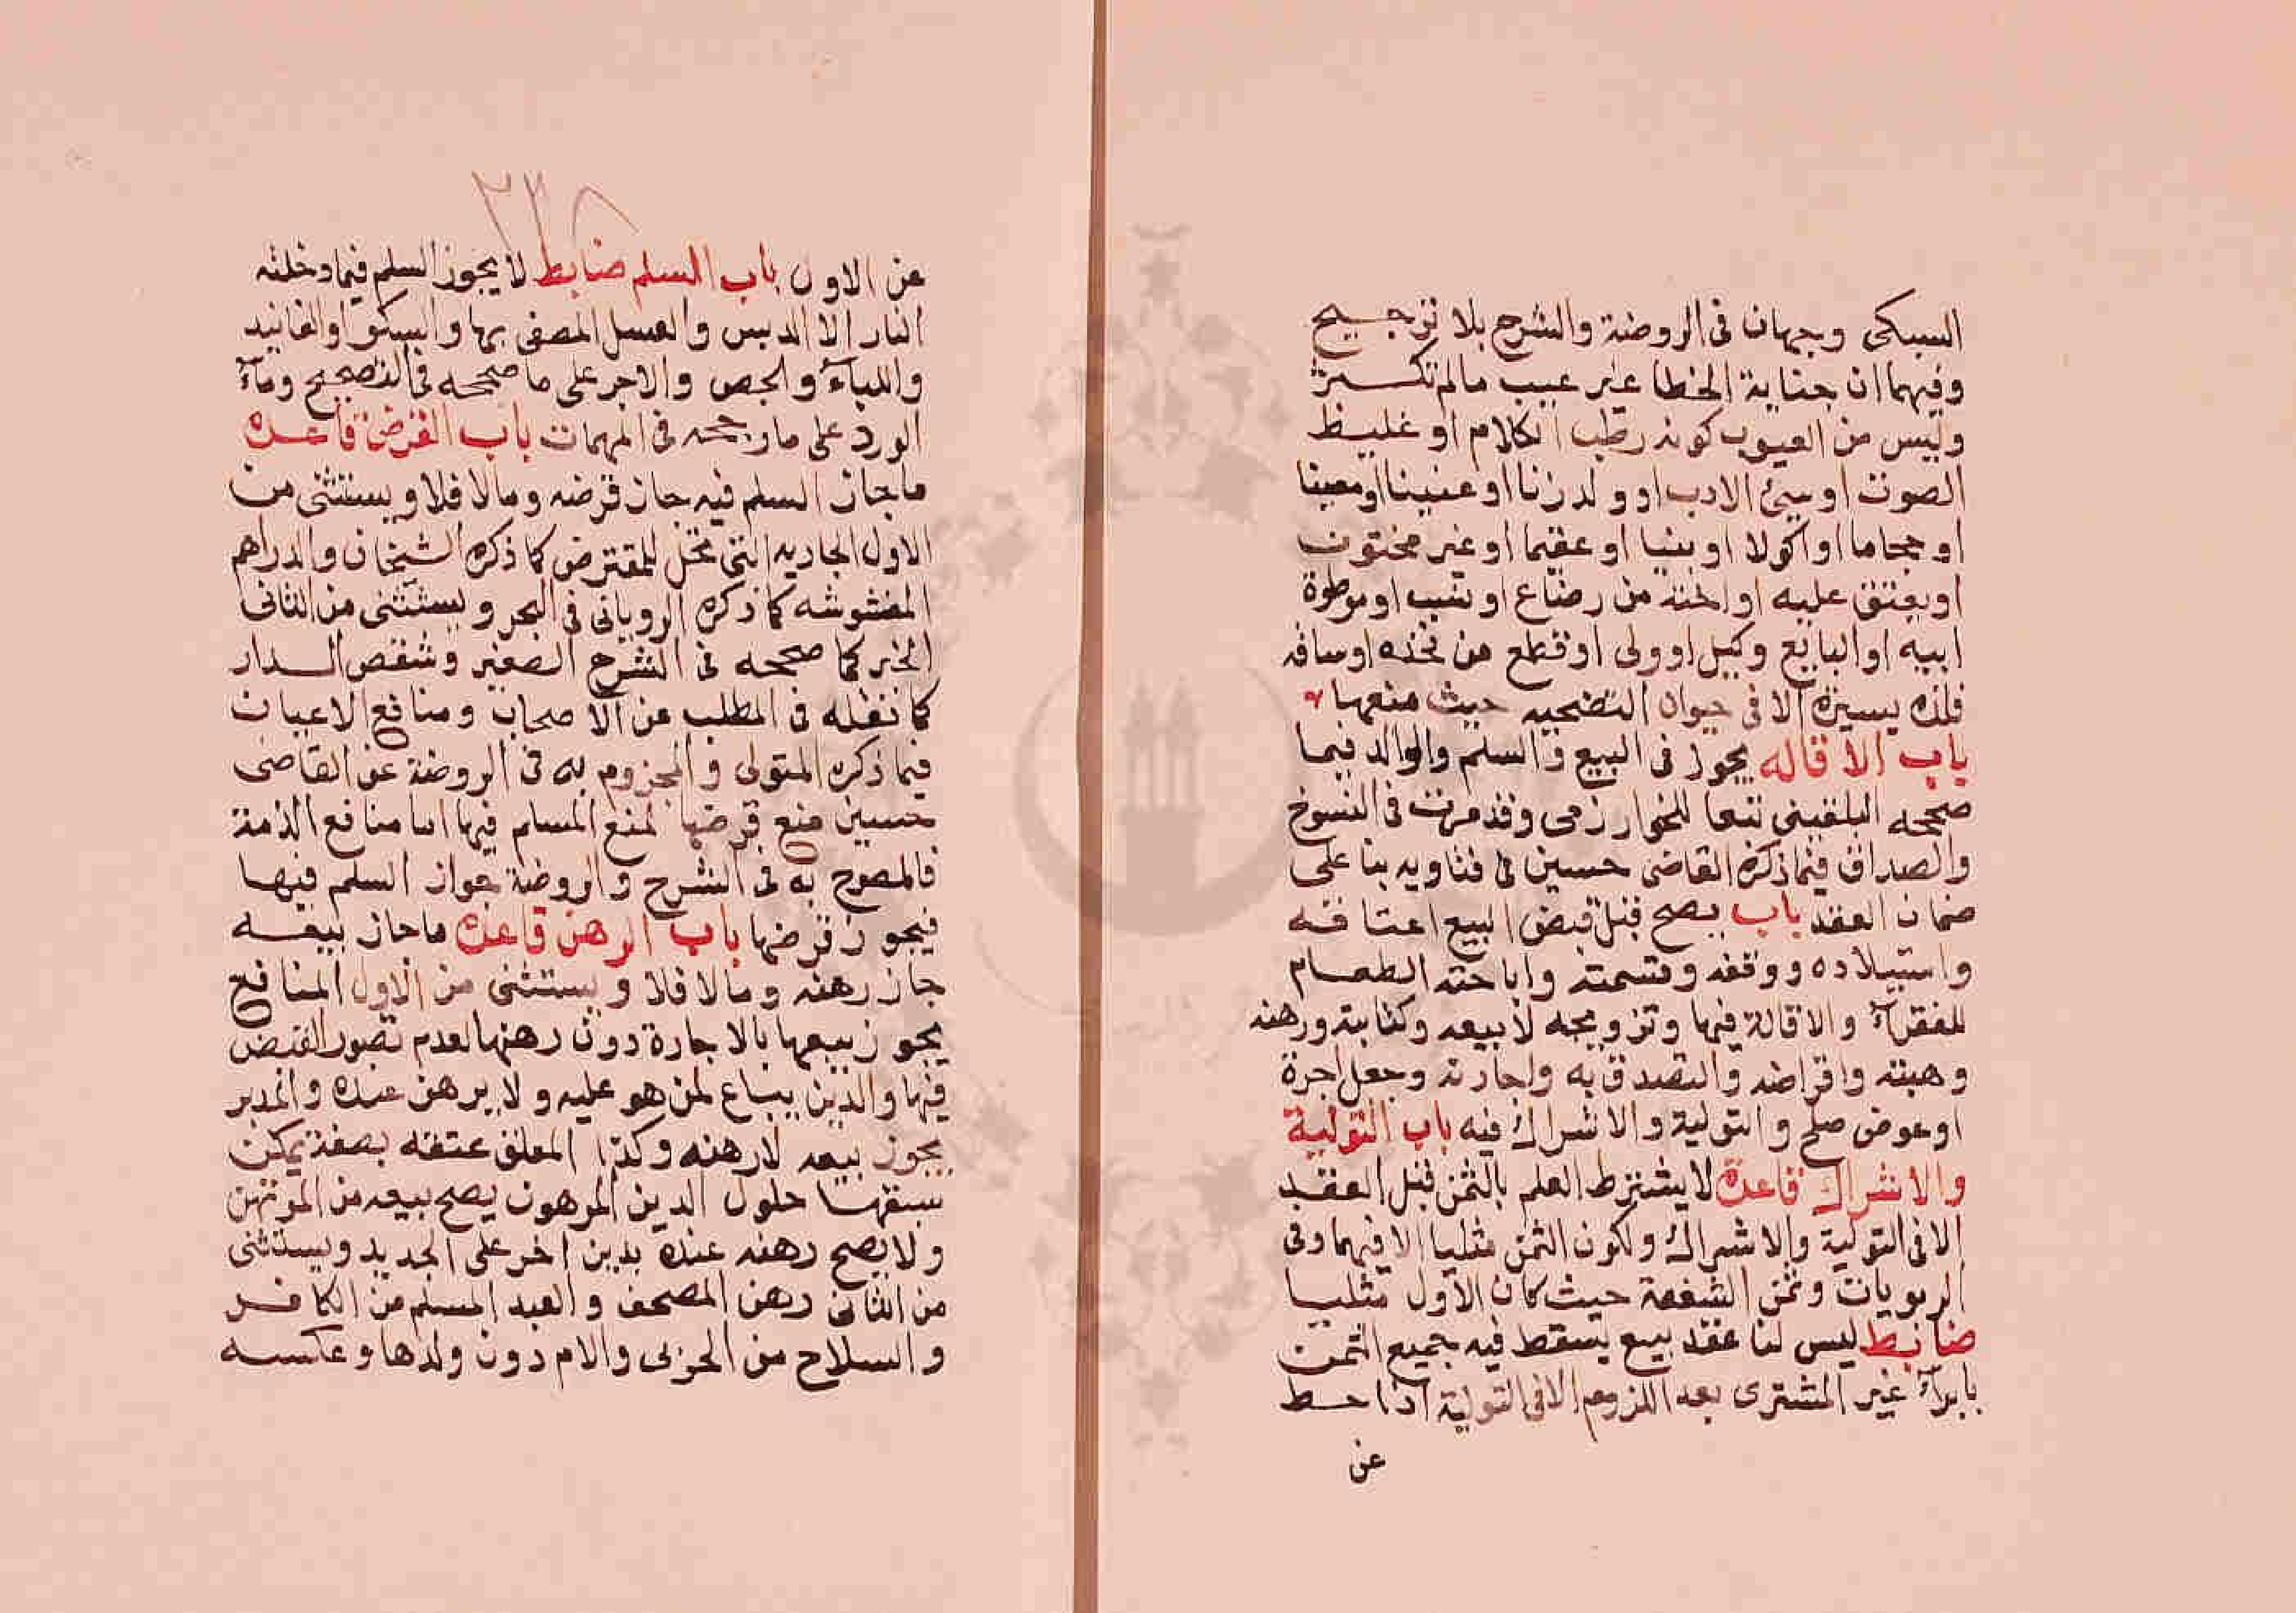 السبكى وجهان فى الروضة والشرح بلا ترجيح
وفيهما ان جناية الخطا غير عيب مالم تكثر
وليس من العيوب كونه رطب الكلام او غليظ
الصوت او سيئ الادب او ولد زنا او عنينا او معينا
او حجاما او اكولا او بنيا او عقيما او غير مختون
او يعتق عليه او اخته من رضاع او نسب او موطوة
ابيه او البايع وكيل او ولى او قطع من فخذه او ساقه
فلذه يسيرة الا فى حيوان التضحيه حيث منعها
باب الاقاله يجوز فى البيع والسلم والوالد فيما
صححه البلقينى تبعا للخوارزمى وقد مرت فى الفسوخ
والصداق فيما ذكره القاضى حسين فى فتاويه بنا على
ضمان العقد باب يصح قبل قبض البيع اعتاقه
واستيلاده ووقفه وقسمته واباحته الطعام
للفقرآء والاقالة فيها وتزويجه لا بيعه وكتابته ورهنه
وهبته واقراضه والتصدق به واجارته وجعل اجرة
او عوض صلح والتولية والاشراك فيه باب التولية
والاشراك قاعدة لا يشترط العلم بالثمن قبل العقد
الا فى التولية والاشراك ولكون الثمن مثليا الا فيهما وفى
الربويات وثمن الشفعة حيث كان الاول مثليا
ضابط ليس لنا عقد بيع يسقط فيه جميع الثمن
بابرآء غير المشترى بعد اللزوم الا فى التولية اذا حط
عن
عن الاول باب السلم ضابط لا يجوز السلم فيما دخلته
النار الا الدبس والعسل المصفى بها والسكر والفانيد
واللباء والجص والاجر على ما صححه فى التصحيح ومآء
الورد على ما رجحه فى المهمات باب القرض قاعدة
ما جاز السلم فيه جاز قرضه وما لا فلا ويستثنى من
الاول الجاريه التى تحل للمقترض كما ذكره الشيخان والدراهم
المغشوشه كما ذكره الرويانى فى البحر ويستثنى من الثانى
الخبز كما صححه فى الشرح الصغير وشقص الدار
كما نقله فى المطلب عن الاصحاب ومنافع الاعيان
فيما ذكره المتولى والمجزوم به فى الروضة عن القاضى
حسين منع قرضها لمنع المسلم فيها اما منافع الذمة
فالمصرح به فى الشرح والروضة جواز السلم فيها
فيجوز قرضها باب الرهن قاعدة ما جاز بيعه
جاز رهنه وما لا فلا ويستثنى من الاول المنافع
يجوز بيعها بالاجارة دون رهنها لعدم تصور القبض
فيها والدين يباع لمن هو عليه ولا يرهن عنده والمدبر
يجوز بيعه لا رهنه وكذا المعلق عتقه بصفة يمكن
سبقها حلول الدين المرهون يصح بيعه من المرتهن
ولا يصح رهنه عنده بدين اخر على الجديد ويستثنى
من الثانى رهن المصحف والعبد المسلم من الكافر
والسلاح من الحربى والام دون ولدها وعكسه